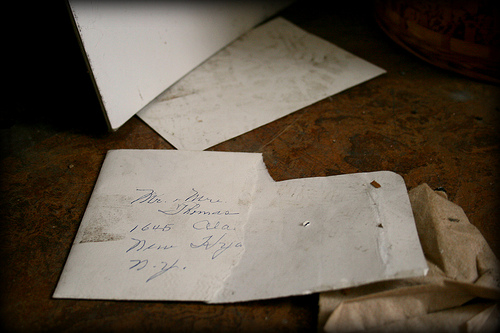 Mr. & Mrs.
Thomas
1645 Ola.
New Hyd
N.Y.